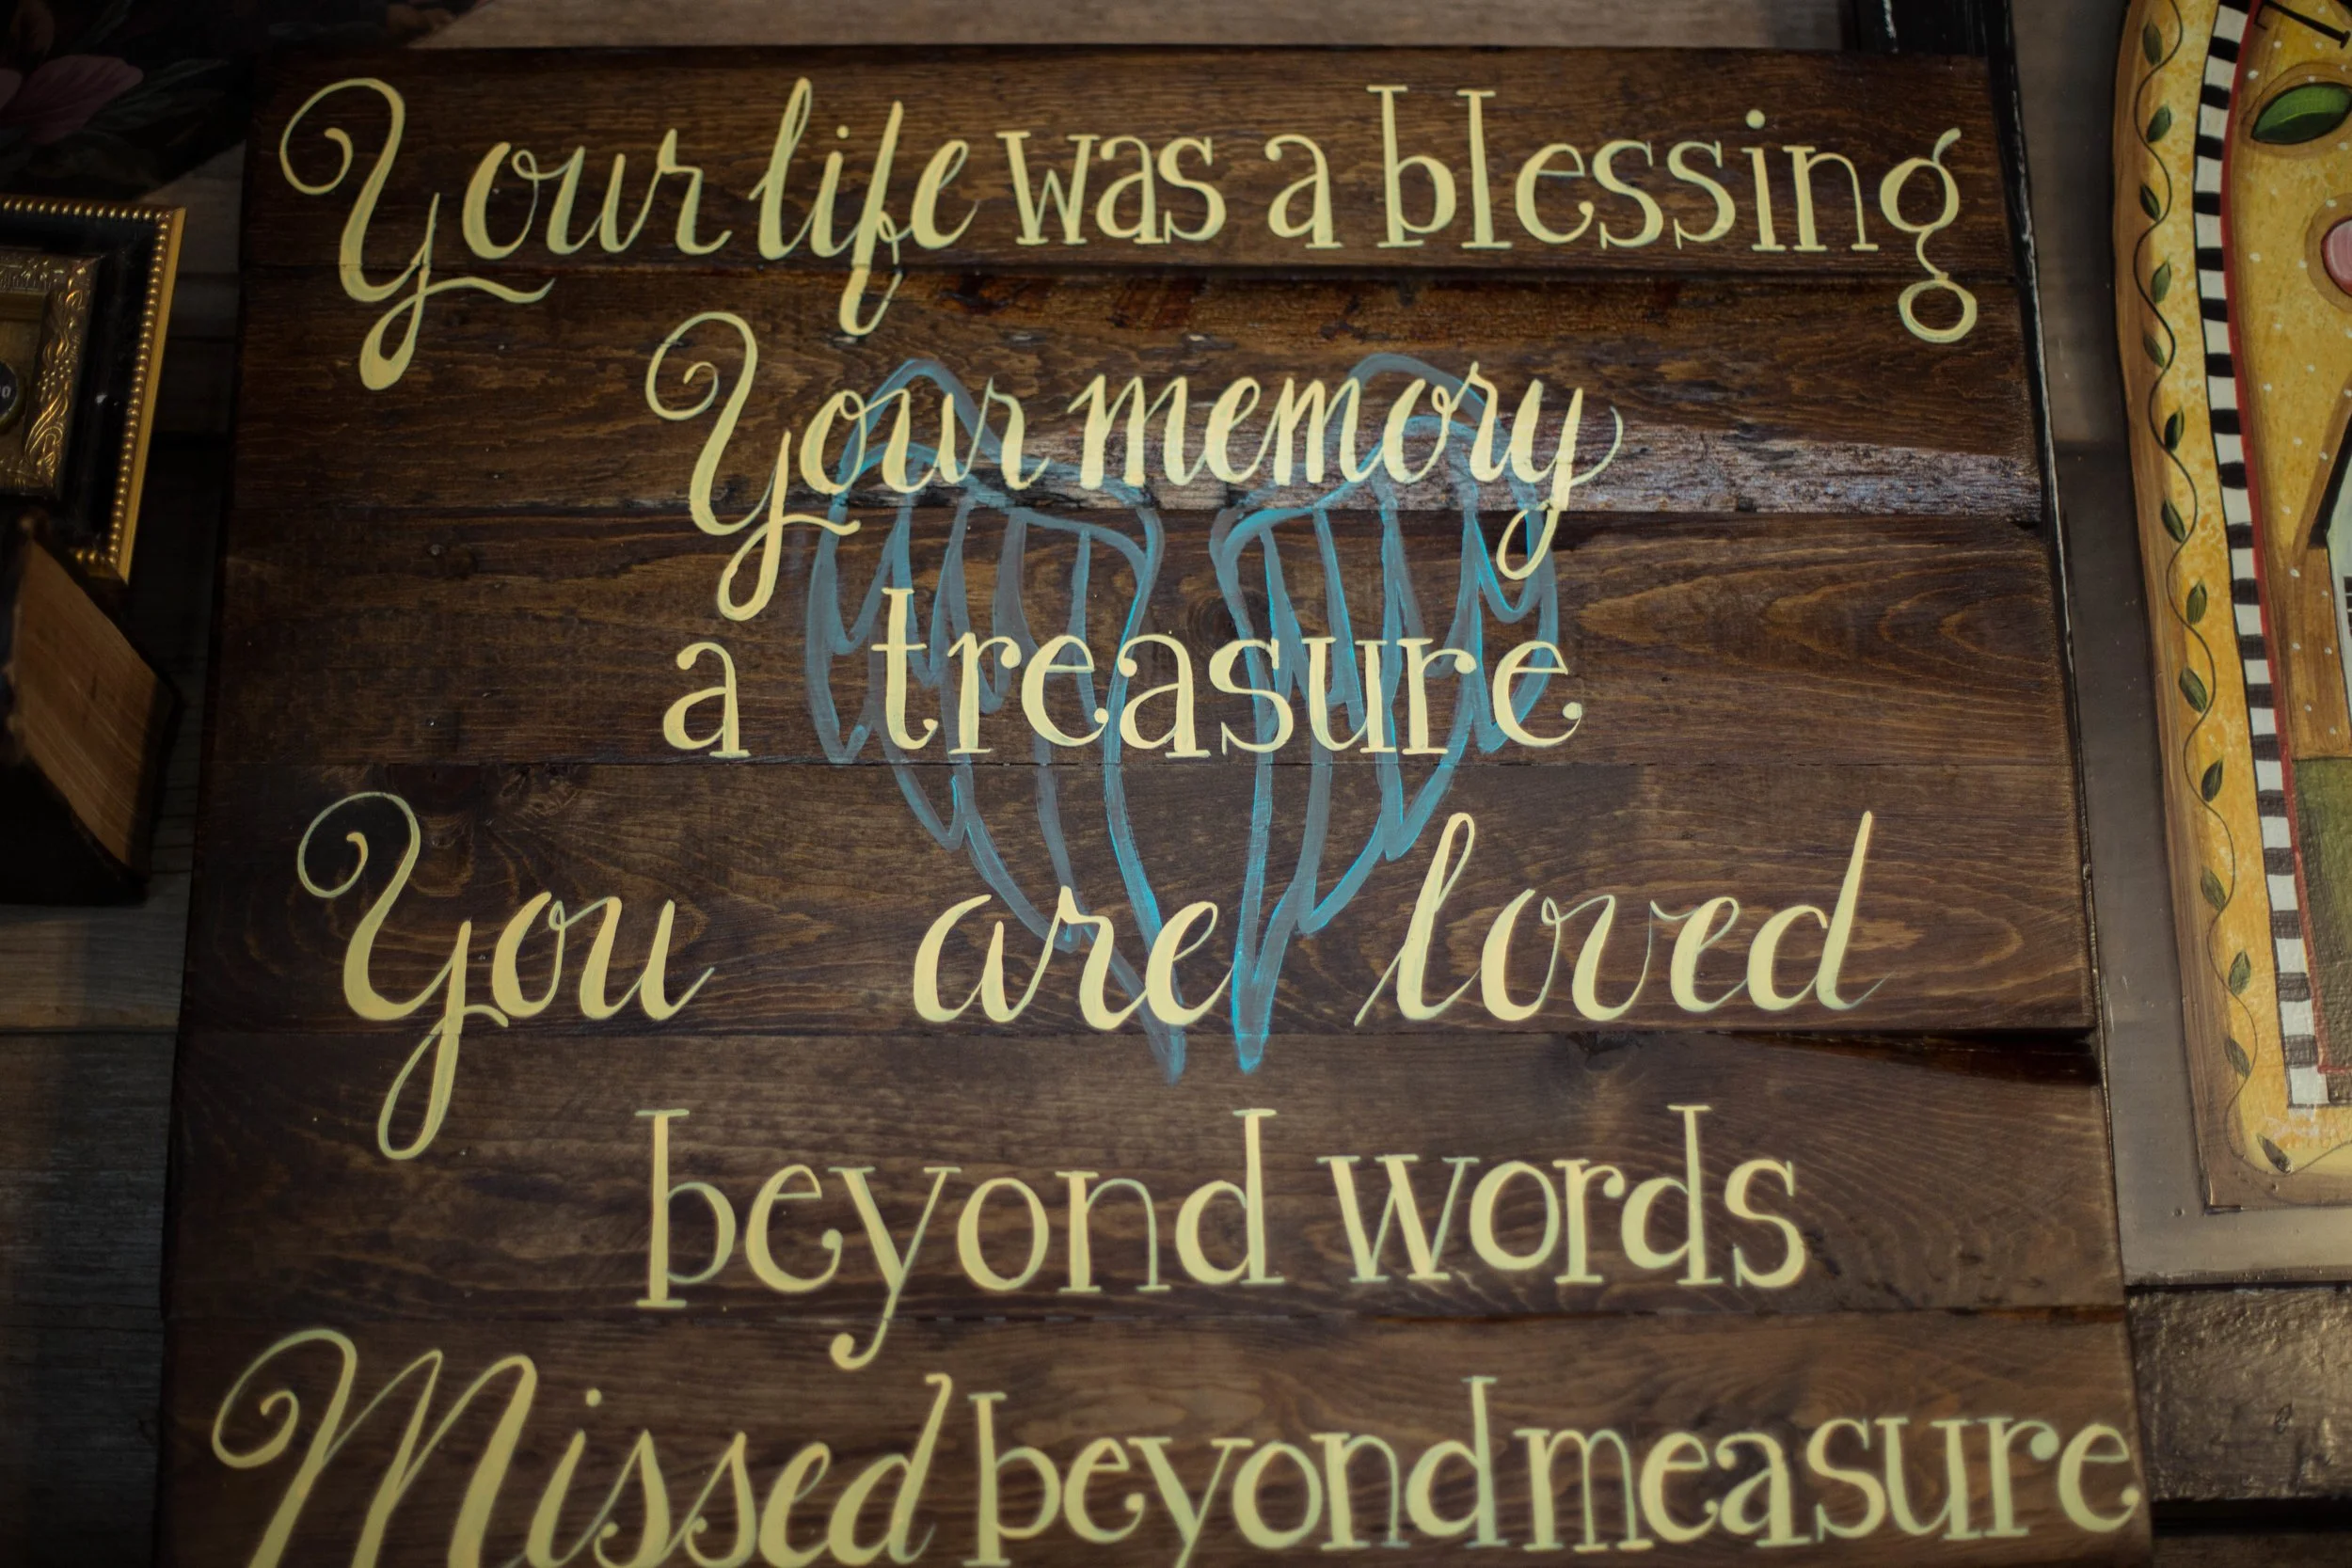 Your life was a blessing
Your memory
a treasure
You are loved
beyond words
Missed beyond measure